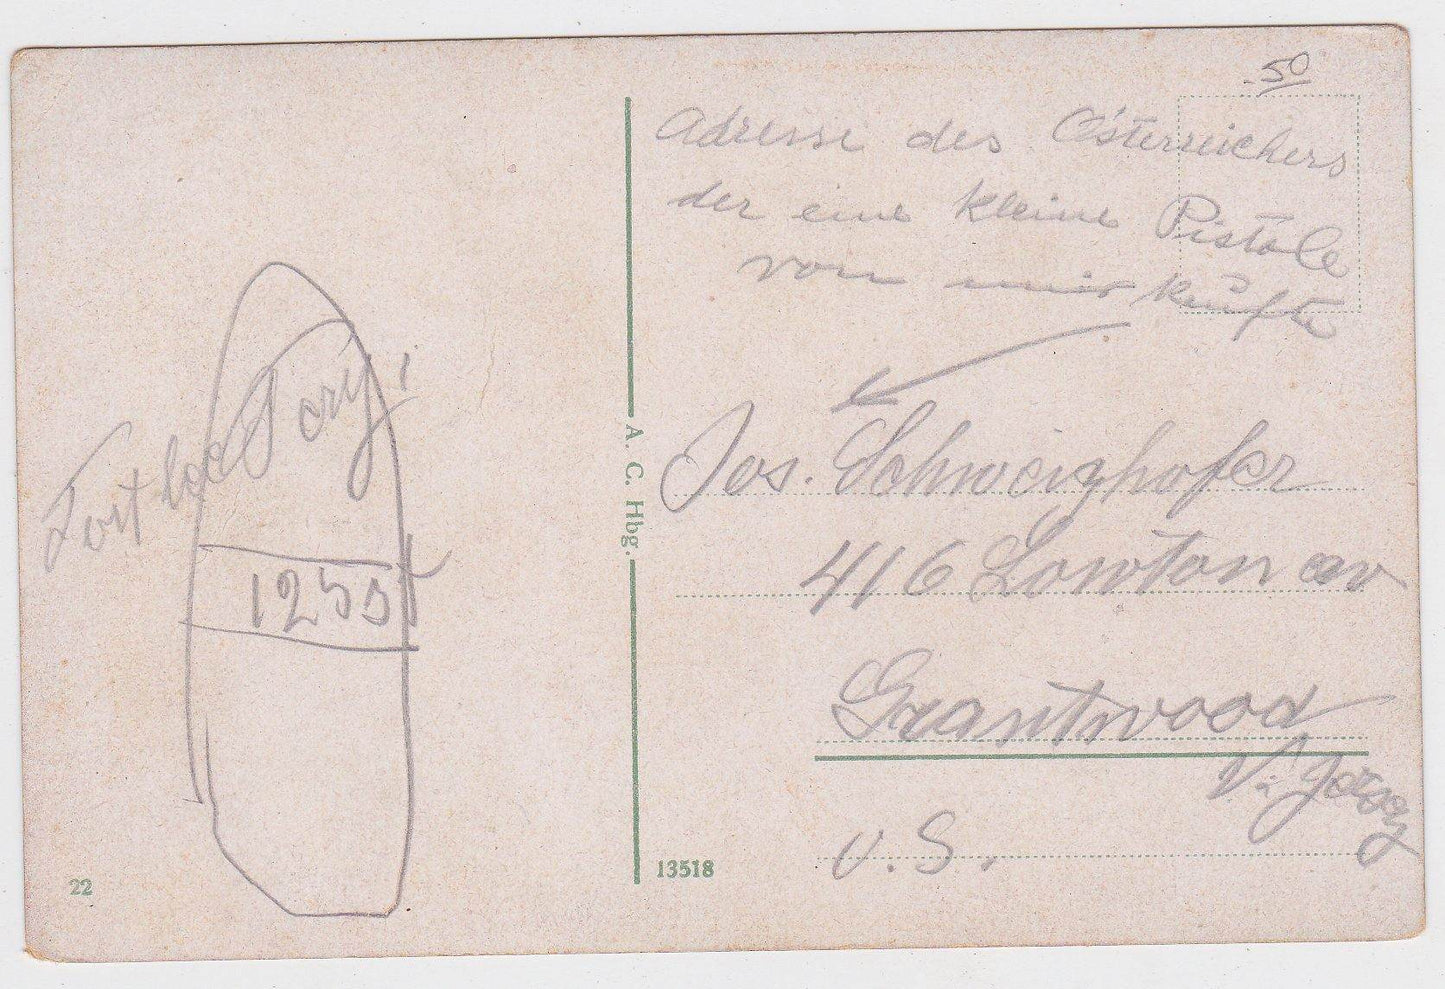 .50
Adresse des Österreichers
der eine kleine Pistole
von mir kaufte
Fort Lee Ferry
125 st
A. C. Hbg.
Jos. Schweighofer
416 Lowton av
Grantwood
N. Jersey
U. S.
22
13518